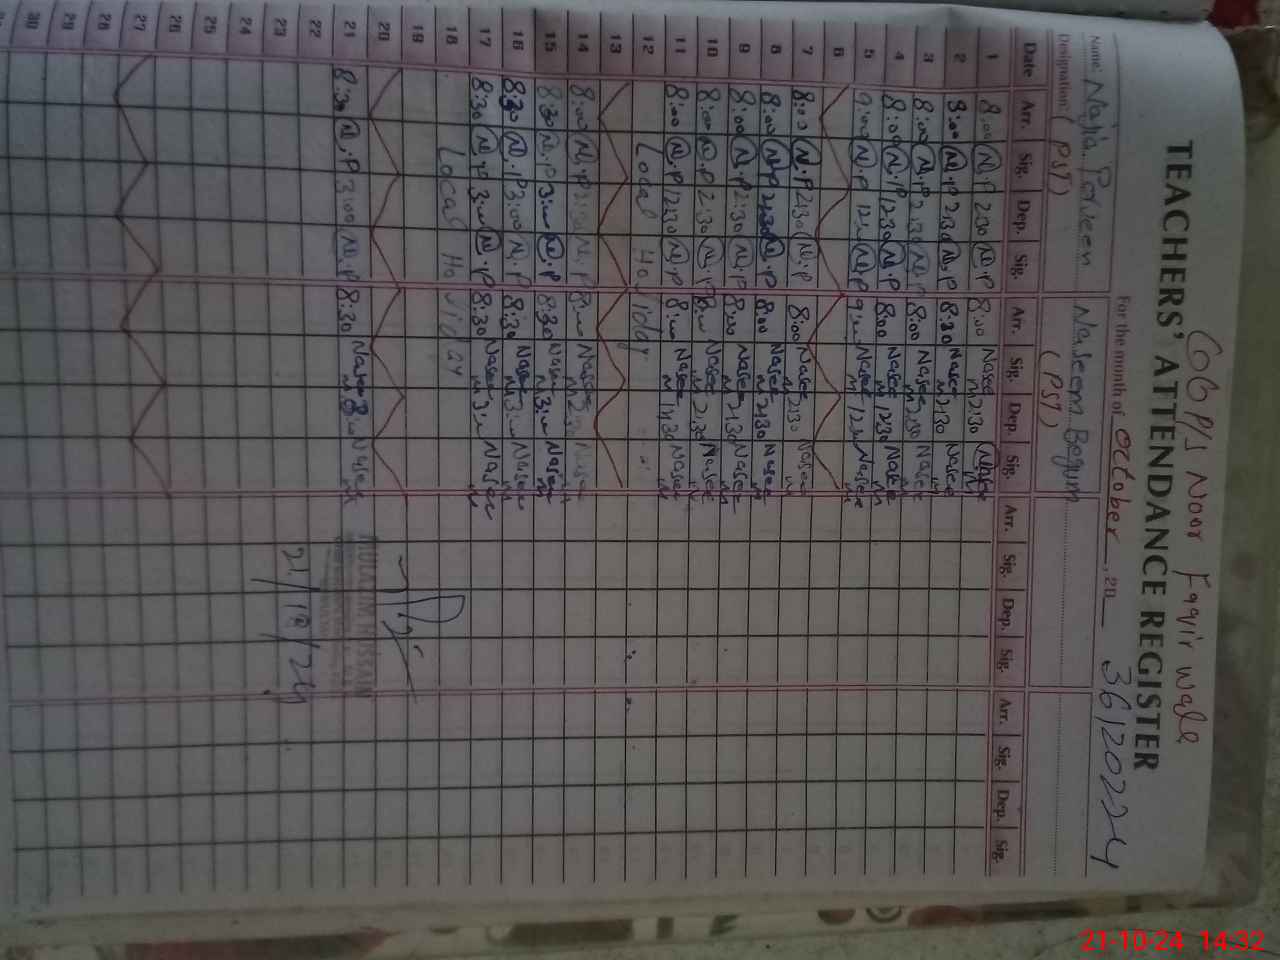 GGPS Noor Faqir wale
TEACHERS' ATTENDANCE REGISTER 36120224
For the month of October, 20
Name: Najia Perveen Naseem Begum
Designation: (PST) (PST)
Date Arr. Sig. Dep. Sig. Arr. Sig. Dep. Sig. Arr. Sig. Dep. Sig. Arr. Sig. Dep. Sig.
1 8:00 N.P 2:30 N.P 8:00 Naseem 2:30 Naseem
2 8:00 N.P 2:30 N.P 8:30 Naseem 2:30 Naseem
3 8:00 N.P 2:30 N.P 8:00 Naseem 2:30 Naseem
4 8:00 N.P 12:30 N.P 8:00 Naseem 12:30 Naseem
5 9:00 N.P 12:00 N.P 9:00 Naseem 12:00 Naseem
6
7 8:00 N.P 2:30 N.P 8:00 Naseem 2:30 Naseem
8 8:00 N.P 2:30 N.P 8:00 Naseem 2:30 Naseem
9 8:00 N.P 2:30 N.P 8:00 Naseem 2:30 Naseem
10 8:00 N.P 2:30 N.P 8:00 Naseem 2:30 Naseem
11 8:00 N.P 12:30 N.P 8:00 Naseem 12:30 Naseem
12 Local Holiday
13
14 8:00 N.P N.P 8:00 Naseem 2:30 Naseem
15 8:30 N.P 3:00 N.P 8:30 Naseem 3:00 Naseem
16 8:30 N.P 3:00 N.P 8:30 Naseem 3:00 Naseem
17 8:30 N.P 3:00 N.P 8:30 Naseem 3:00 Naseem
18 Local Holiday
19
20
21 8:30 N.P 3:00 N.P 8:30 Naseem 3:00 Naseem
22
23
24
25
26
27
28
29
30
21/10/24
21-10-24 14:32